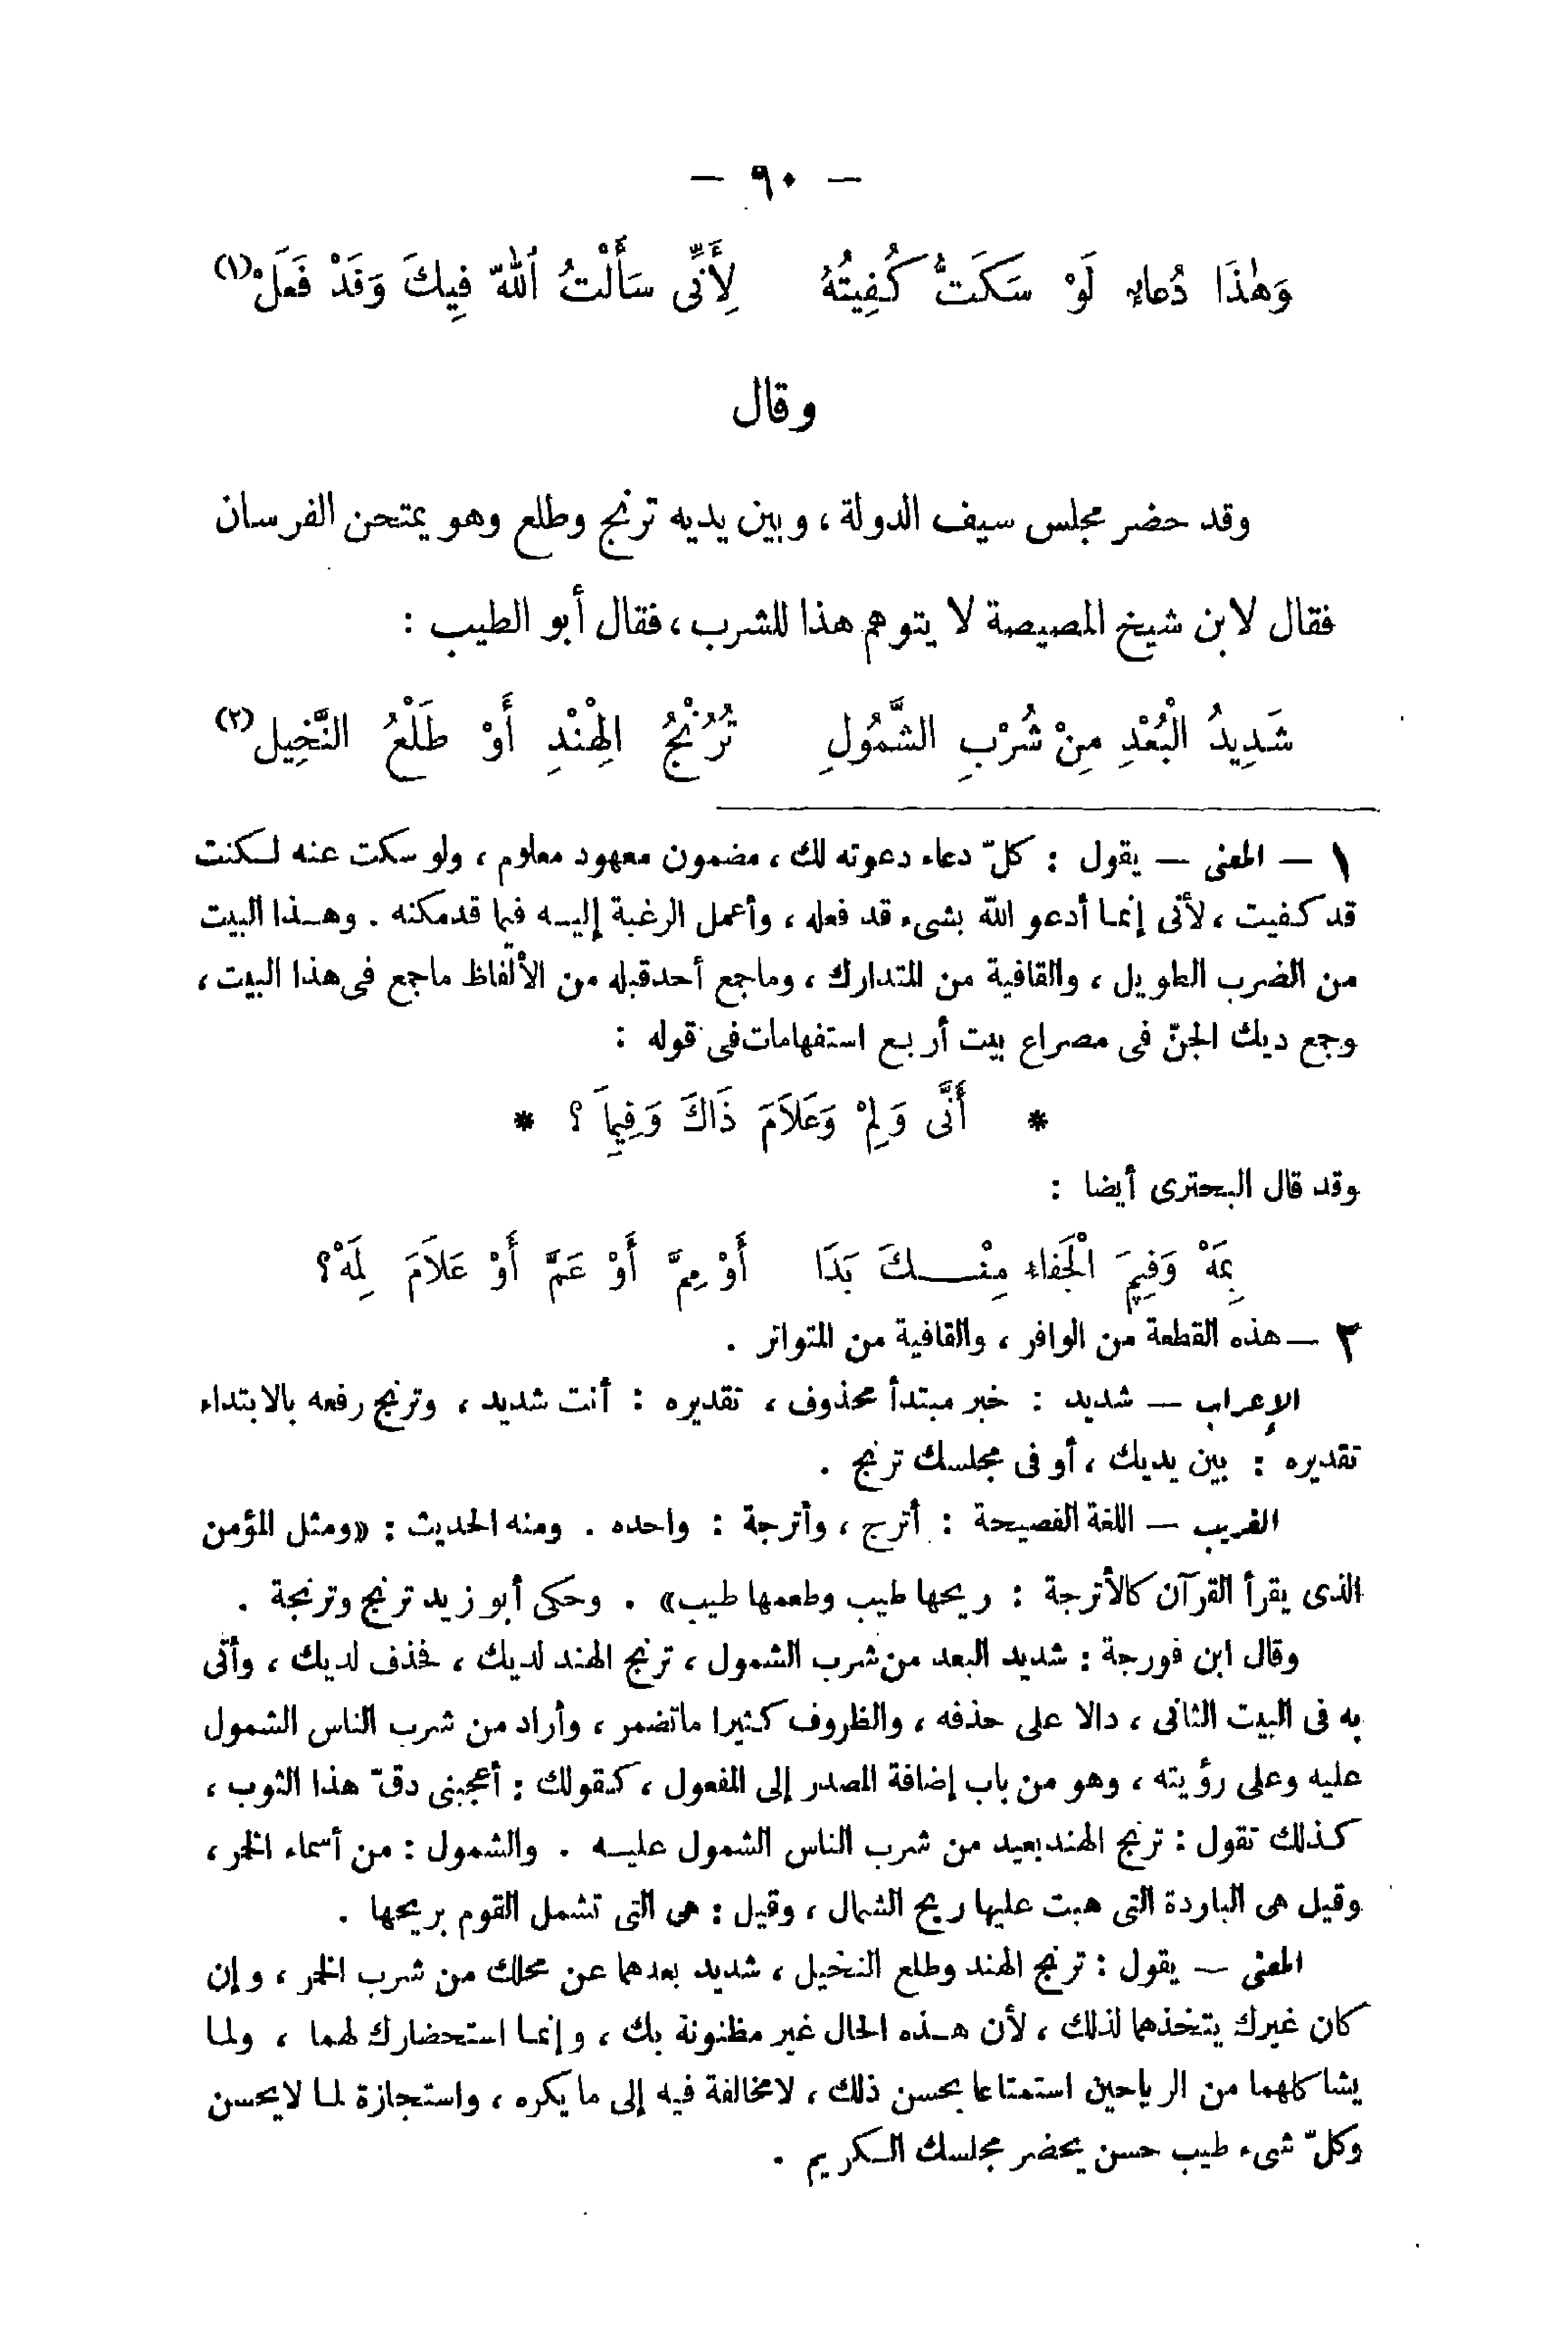 — ٩٠ —
وَهٰذَا دُعاءٌ لَوْ سَكَتُّ كُفِيتُهُ لِأَنِّى سَأَلْتُ ٱللهَ فِيكَ وَقَدْ فَعَلْ(١)
وقال
وقد حضر مجلس سيف الدولة ، وبين يديه ترنج وطلع وهو يمتحن الفرسان
فقال لابن شيخ المصيصة لا يتوهم هذا للشرب ، فقال أبو الطيب :
شَدِيدُ الْبُعْدِ مِنْ شُرْبِ الشَّمُولِ تُرُنْجُ الْهِنْدِ أَوْ طَلْعُ النَّخِيلِ(٢)
١ — المعنى — يقول : كلّ دعاء دعوته لك ، مضمون معهود معلوم ، ولو سكت عنه لـكنت
قد كفيت ، لأنى إنما أدعو الله بشىء قد فعله ، وأعمل الرغبة إليـه فيما قدمكنه . وهـذا البيت
من الضرب الطويل ، والقافية من المتدارك ، وماجمع أحدقبله من الألفاظ ماجمع فى هذا البيت ،
وجمع ديك الجنّ فى مصراع بيت أربع استفهامات فى قوله :
* أَنَّى وَلِمْ وَعَلاَمَ ذَاكَ وَفِيمَا ؟ *
وقد قال البحترى أيضا :
بِمَهْ وَفِيمَ الْجَفاءِ مِنْـكَ بَدَا أَوْ مِمَّ أَوْ عَمَّ أَوْ عَلاَمَ لِمَهْ؟
٢ — هذه القطعة من الوافر ، والقافية من المتواتر .
الإعراب — شديد : خبر مبتدأ محذوف ، تقديره : أنت شديد ، وترنج رفعه بالابتداء
تقديره : بين يديك ، أو فى مجلسك ترنج .
الغريب — اللغة الفصيحة : أترج ، وأترجة : واحده . ومنه الحديث : «ومثل المؤمن
الذى يقرأ القرآن كالأترجة : ريحها طيب وطعمها طيب» . وحكى أبو زيد ترنج وترنجة .
وقال ابن فورجة : شديد البعد من شرب الشمول ، ترنج الهند لديك ، فحذف لديك ، وأتى
به فى البيت الثانى ، دالا على حذفه ، والظروف كثيرا ماتضمر ، وأراد من شرب الناس الشمول
عليه وعلى رؤيته ، وهو من باب إضافة المصدر إلى المفعول ، كقولك : أعجبنى دقّ هذا الثوب ،
كذلك تقول : ترنج الهند بعيد من شرب الناس الشمول عليـه . والشمول : من أسماء الخمر ،
وقيل هى الباردة التى هبت عليها ريح الشمال ، وقيل : هى التى تشمل القوم بريحها .
المعنى — يقول : ترنج الهند وطلع النخيل ، شديد بعدهما عن محلك من شرب الخمر ، وإن
كان غيرك يتخذهما لذلك ، لأن هـذه الحال غير مظنونة بك ، وإنما استحضارك لهما ، ولما
يشاكلهما من الرياحين استمتاعا بحسن ذلك ، لامخالفة فيه إلى ما يكره ، واستجازة لما لايحسن
وكلّ شىء طيب حسن يحضر مجلسك الـكريم .